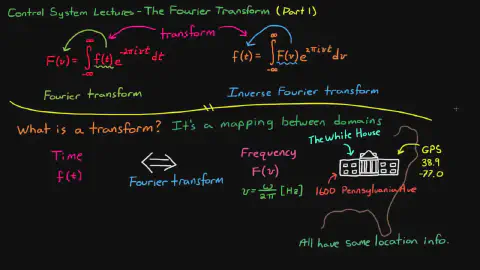 Control System Lectures - The Fourier Transform (Part 1)
transform
F(ν) = ∫_{-∞}^{∞} f(t) e^{-2πiνt} dt
f(t) = ∫_{-∞}^{∞} F(ν) e^{2πiνt} dν
Fourier transform
Inverse Fourier transform
What is a transform? It's a mapping between domains
Time
f(t)
Fourier transform
Frequency
F(ν)
ν = ω/2π [Hz]
The White House
GPS
38.9
-77.0
1600 Pennsylvania Ave
All have same location info.